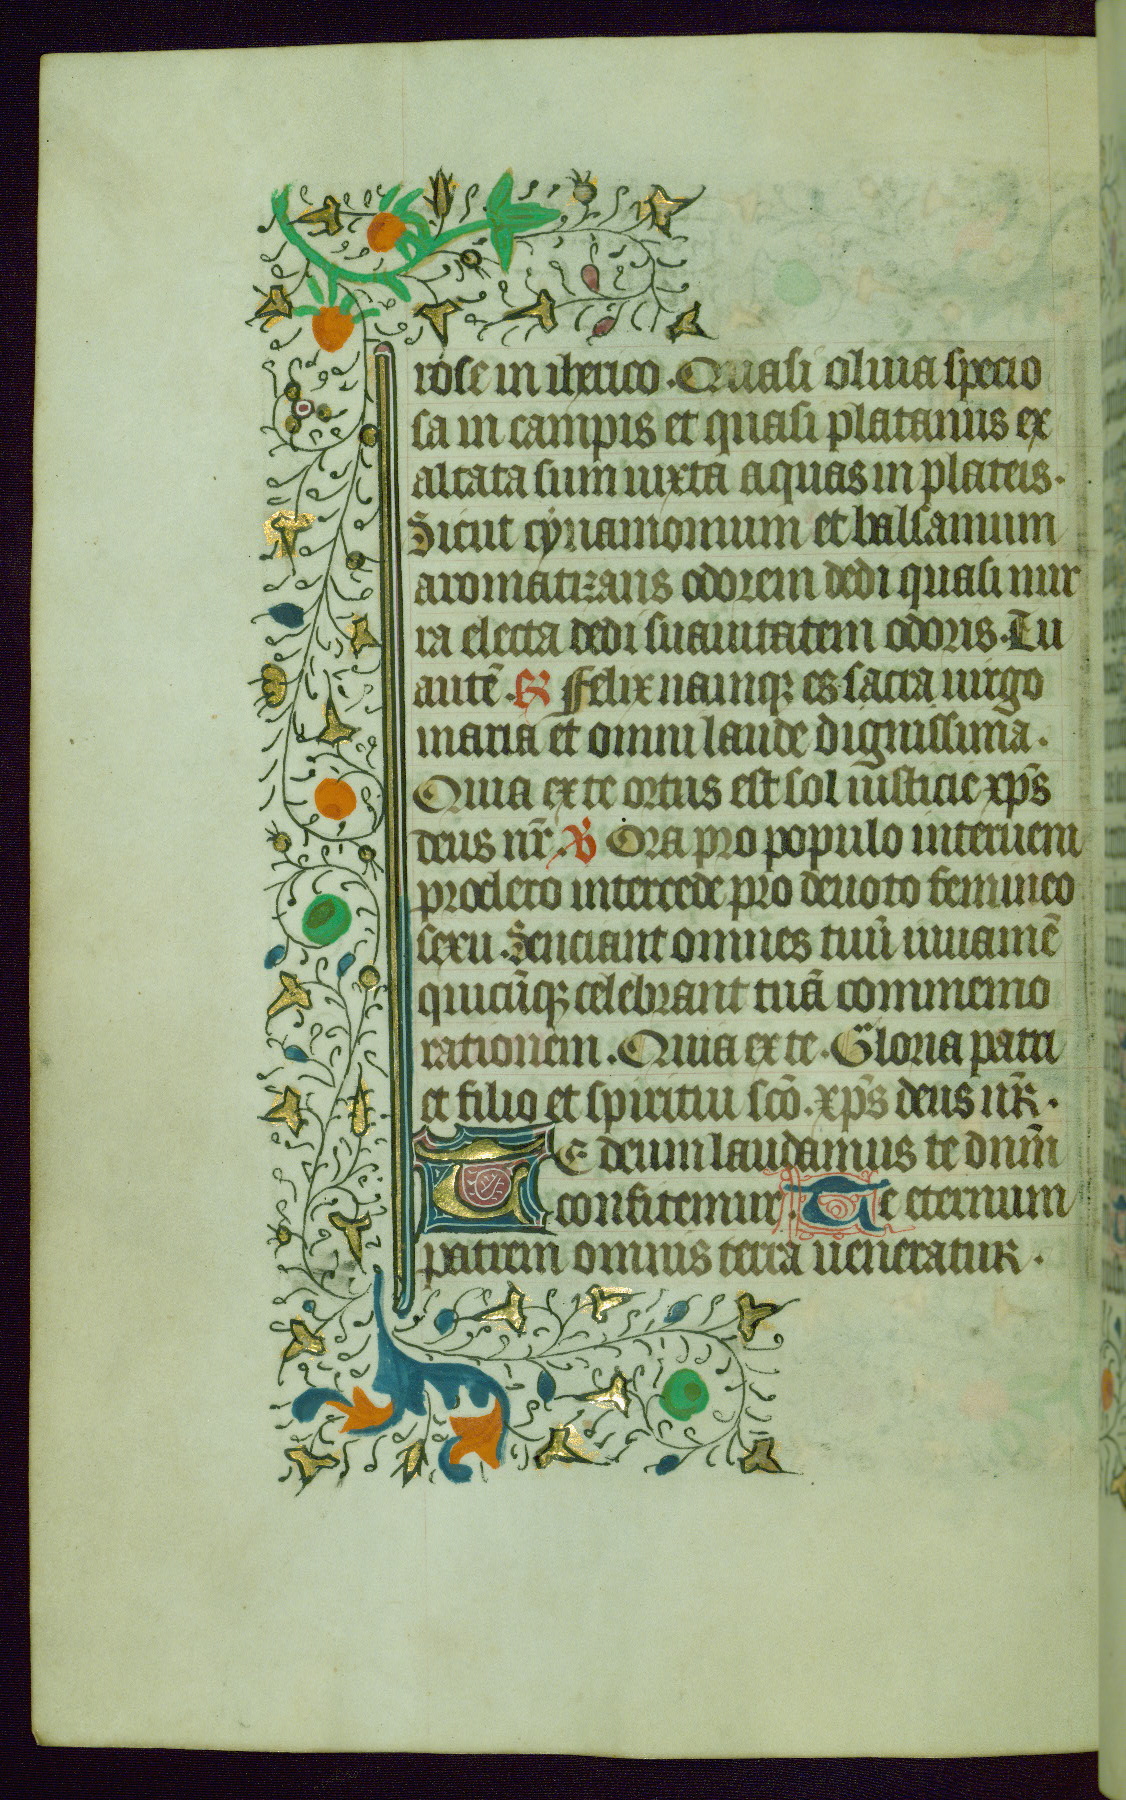 rose in iherico. Quasi oliua specio
sa in campis et quasi platanus ex
altata sum iuxta aquas in plateis.
Sicut cynamomum et balsamum
aromatizans odorem dedi quasi mir
ra electa dedi suauitatem odoris. Tu
autē. R Felix namqꝫ es sacra uirgo
maria et omni laude dignissima.
Quia ex te ortus est sol iusticie xp̄s
deus nr̄. V Ora pro populo interueni
pro clero intercede pro deuoto femineo
sexu. Senciant omnes tuū iuuamē
quicūqꝫ celebrant tuā commemo
rationem. Quia ex te. Gloria patri
et filio et spiritui sc̄o. xp̄s deus nr̄.
TE deum laudamus te dn̄m
confitemur. Te eternum
patrem omnis terra ueneratur.